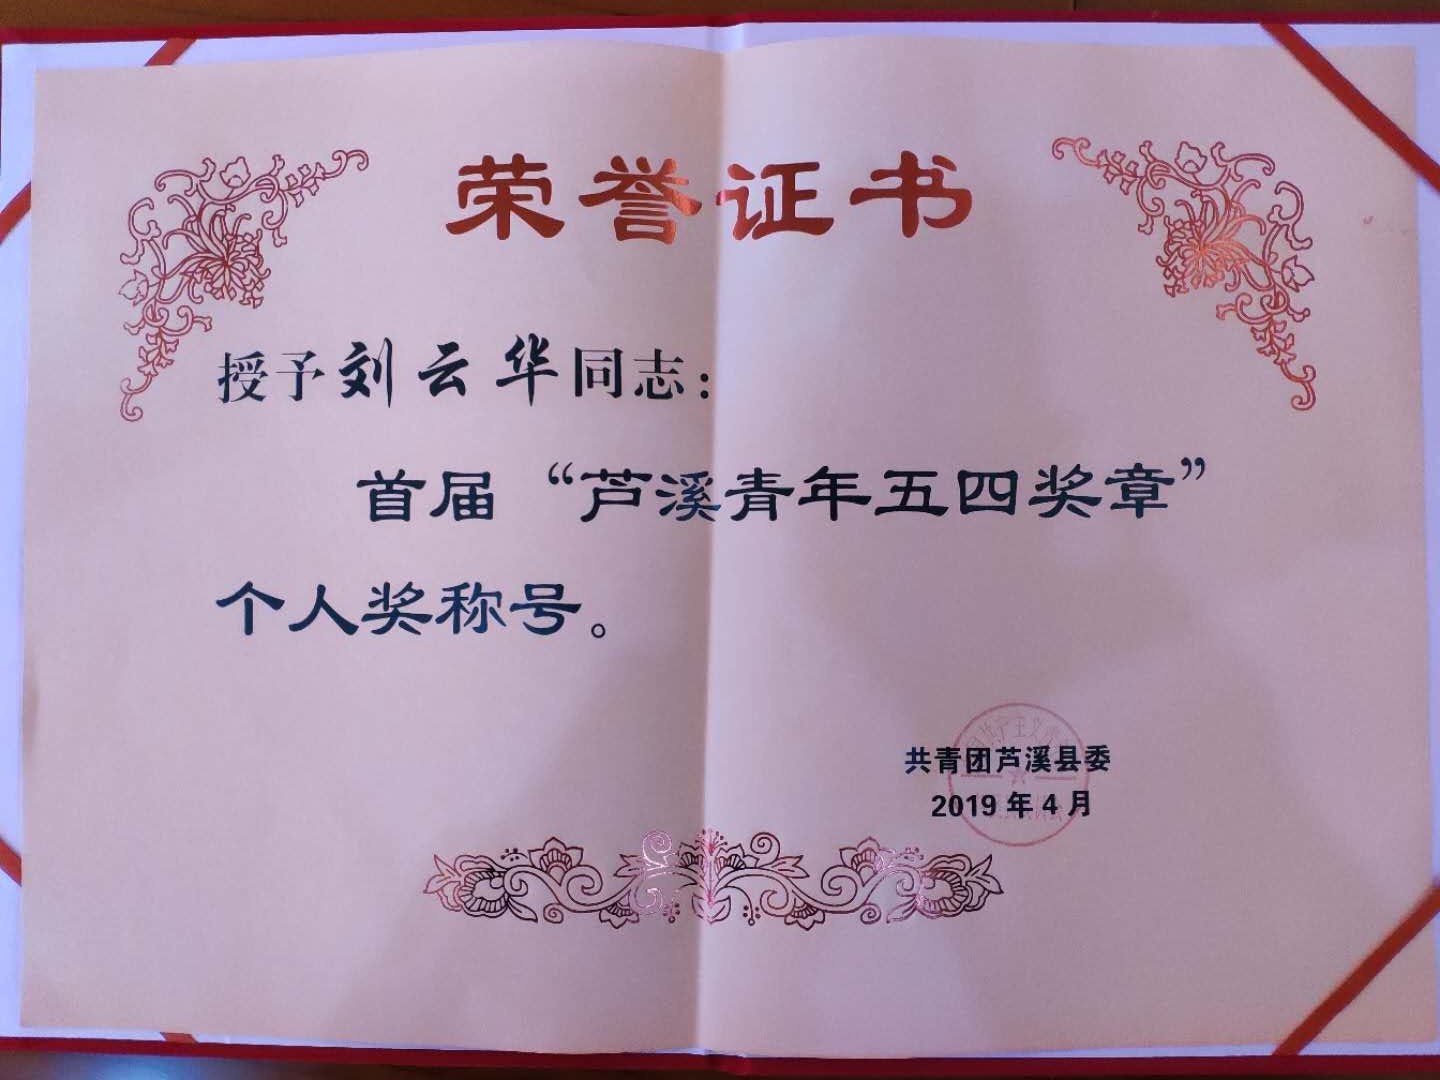 荣誉证书
授予刘云华同志：
首届“芦溪青年五四奖章”
个人奖称号。
共青团芦溪县委
2019年4月